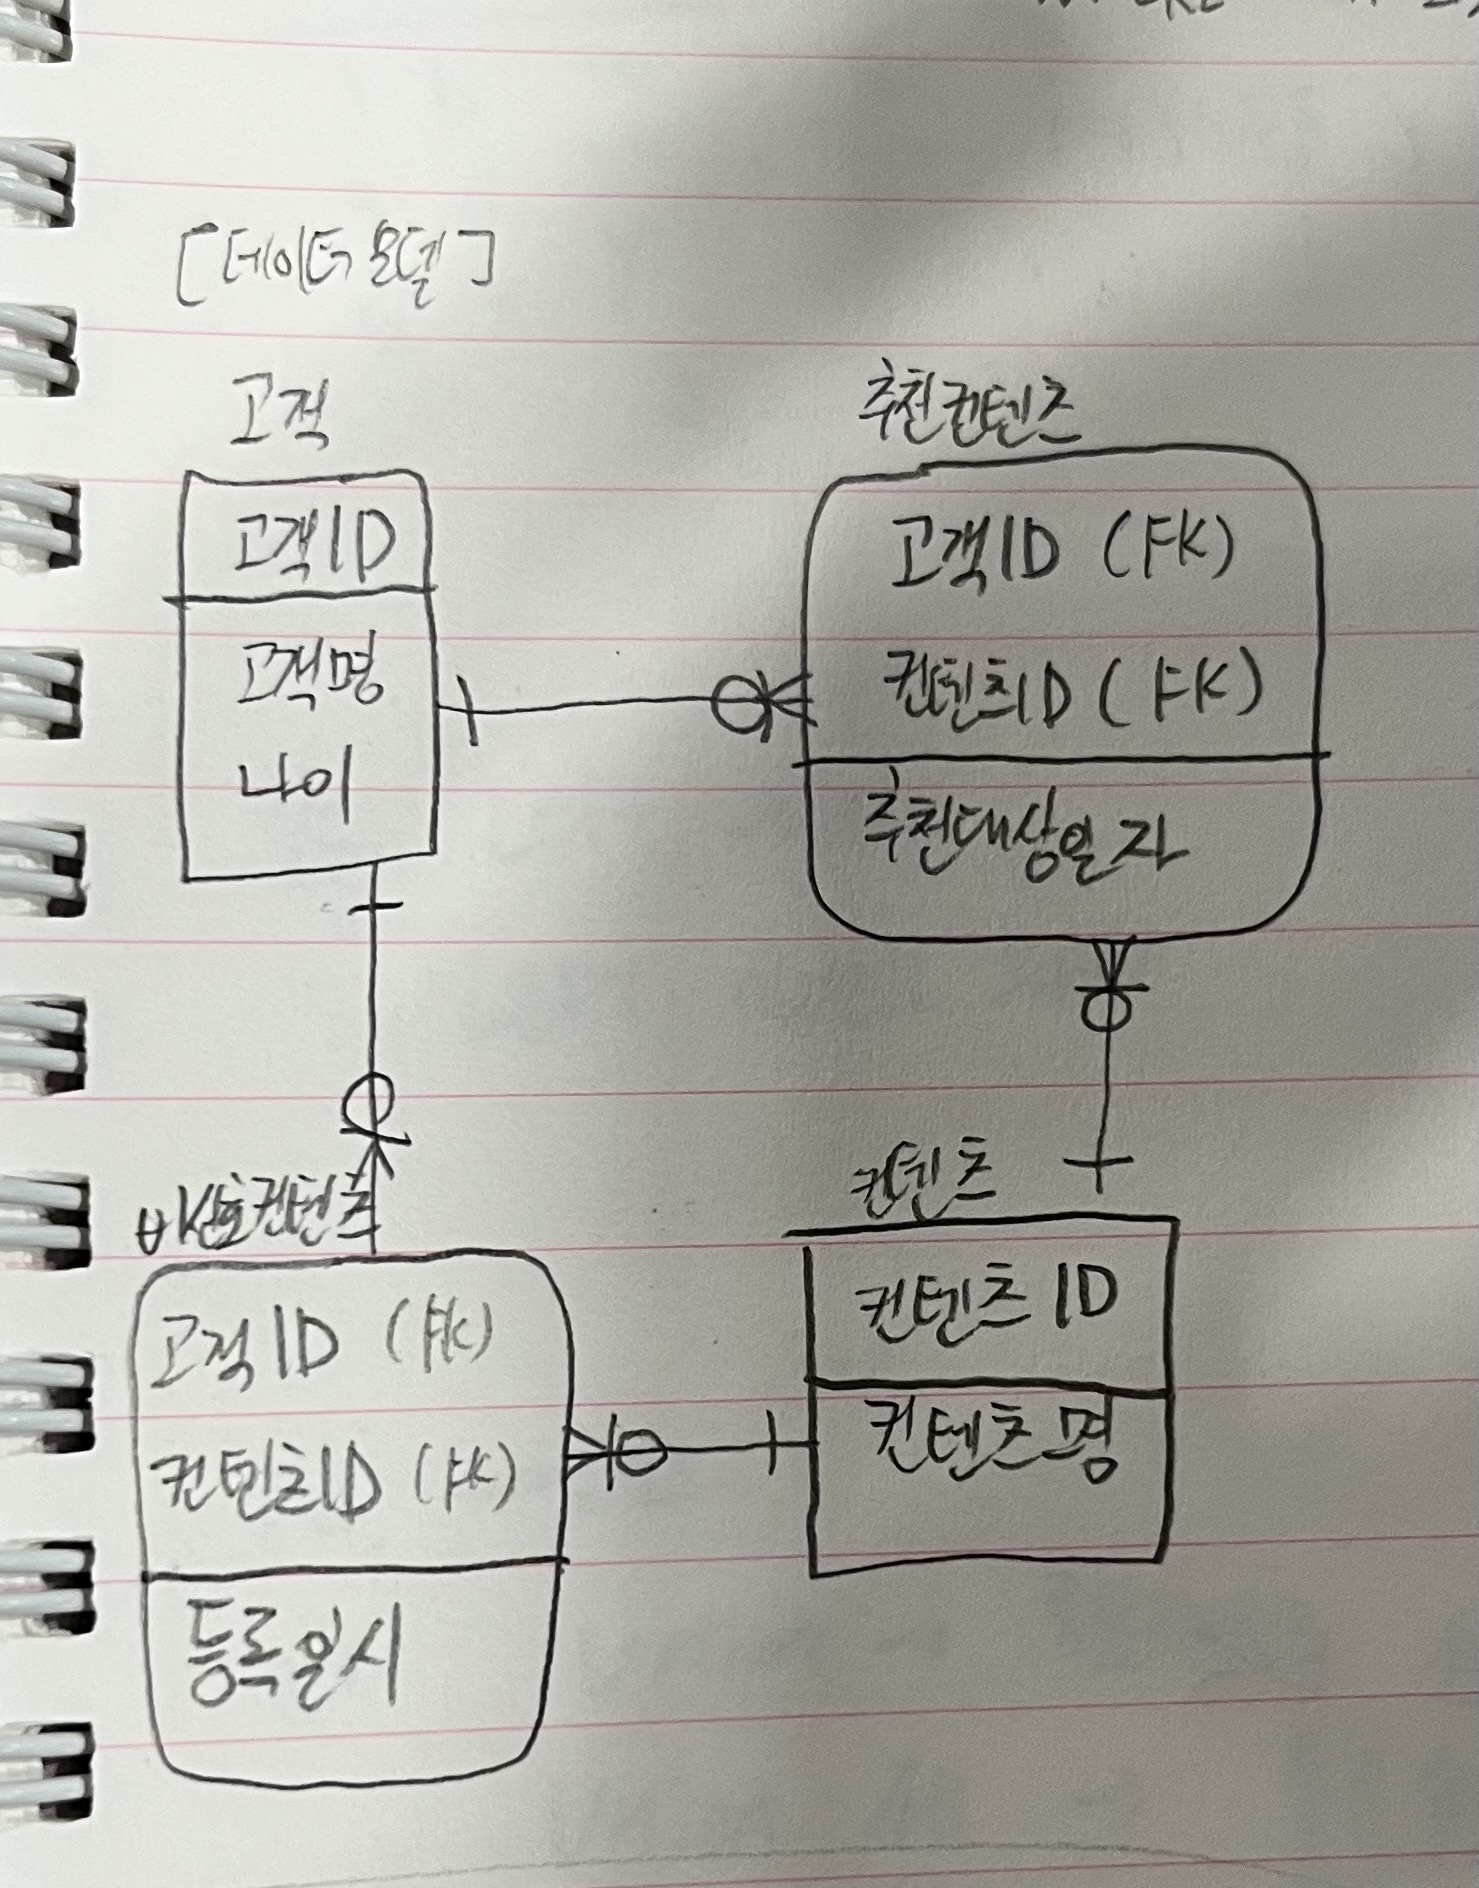 [데이터 모델]
고객
고객ID
고객명
나이
추천컨텐츠
고객ID (FK)
컨텐츠ID (FK)
추천대상일자
비선호컨텐츠
고객ID (FK)
컨텐츠ID (FK)
등록일시
컨텐츠
컨텐츠ID
컨텐츠명